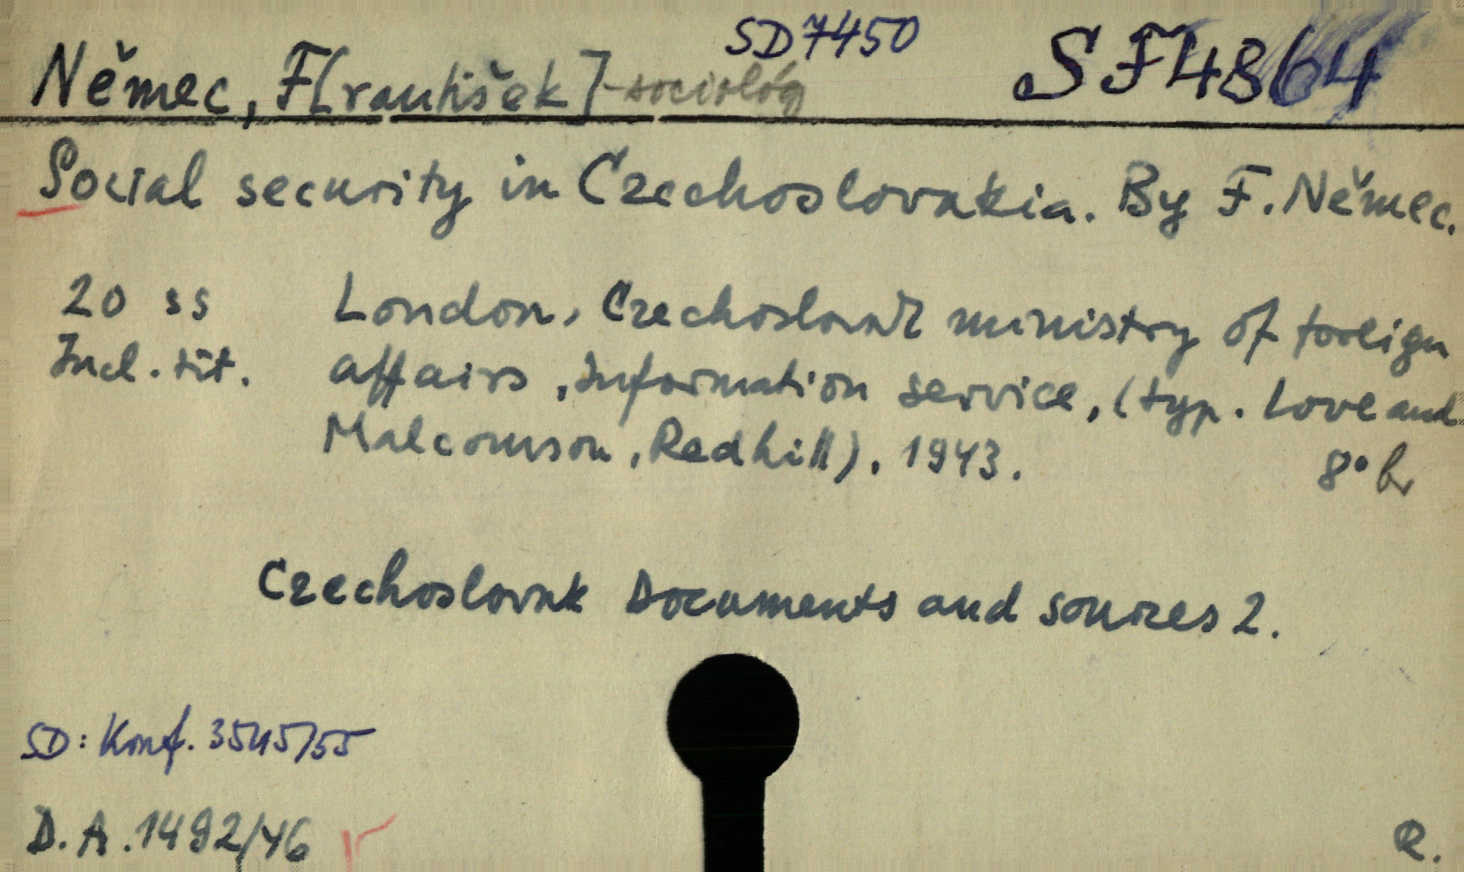 SD 7450
SF 4864
Němec, F[rantišek] - sociológ
Social security in Czechoslovakia. By F. Němec.
20 ss London, Czechoslovak ministry of foreign
Incl. tit. affairs, Information service, (typ. Love and
Malcomson, Redhill), 1943. 8° br
Czechoslovak Documents and sources 2.
SD: Konf. 3545/55
D. A. 1492/46
R.